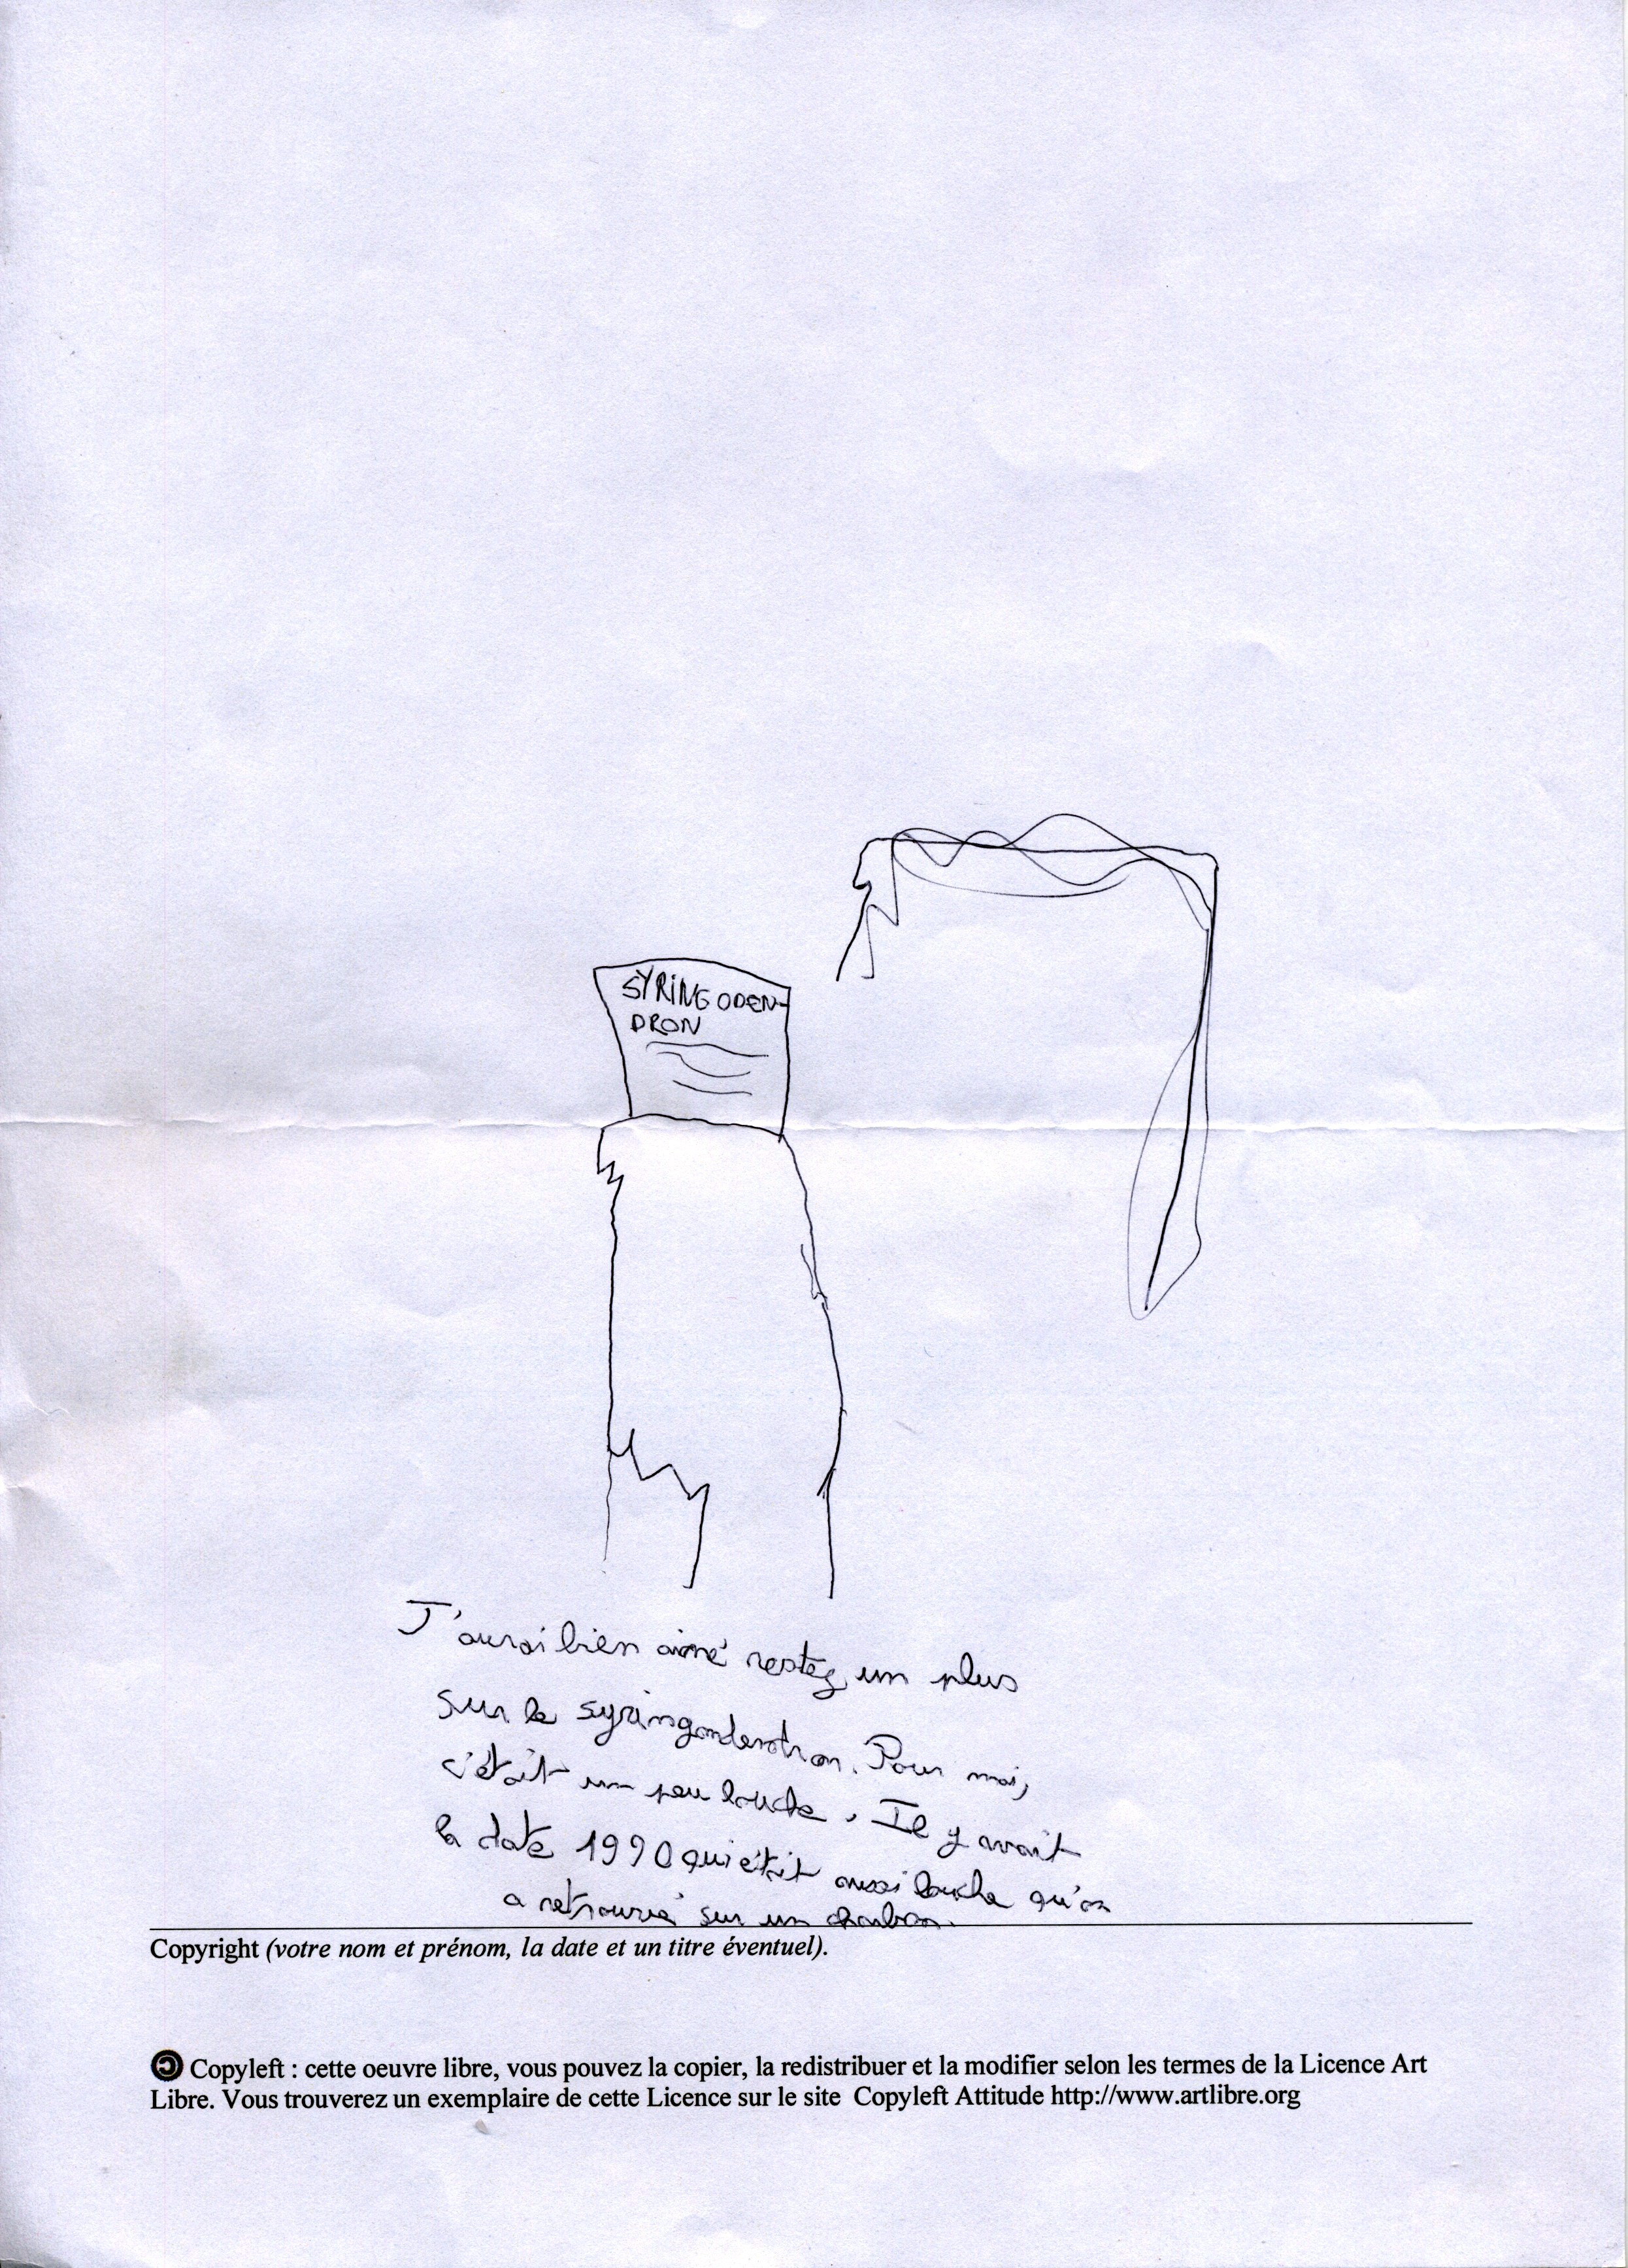 SYRINGODEN-
DRON
J'aurai bien aimé restez un plus
sur le syringondendron. Pour moi,
c'était un peu louche. Il y avait
la date 1990 qui était aussi louche qu'on
a retrouvé sur un charbon.
Copyright (votre nom et prénom, la date et un titre éventuel).
Copyleft : cette oeuvre libre, vous pouvez la copier, la redistribuer et la modifier selon les termes de la Licence Art
Libre. Vous trouverez un exemplaire de cette Licence sur le site Copyleft Attitude http://www.artlibre.org